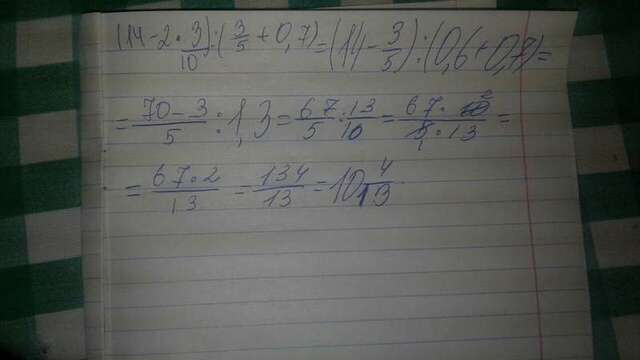 (14-2·3/10):(3/5+0,7)=(14-3/5):(0,6+0,7)=
=70-3/5:1,3=67/5:13/10=67·10 2/5 1·13=
=67·2/13=134/13=10 4/13